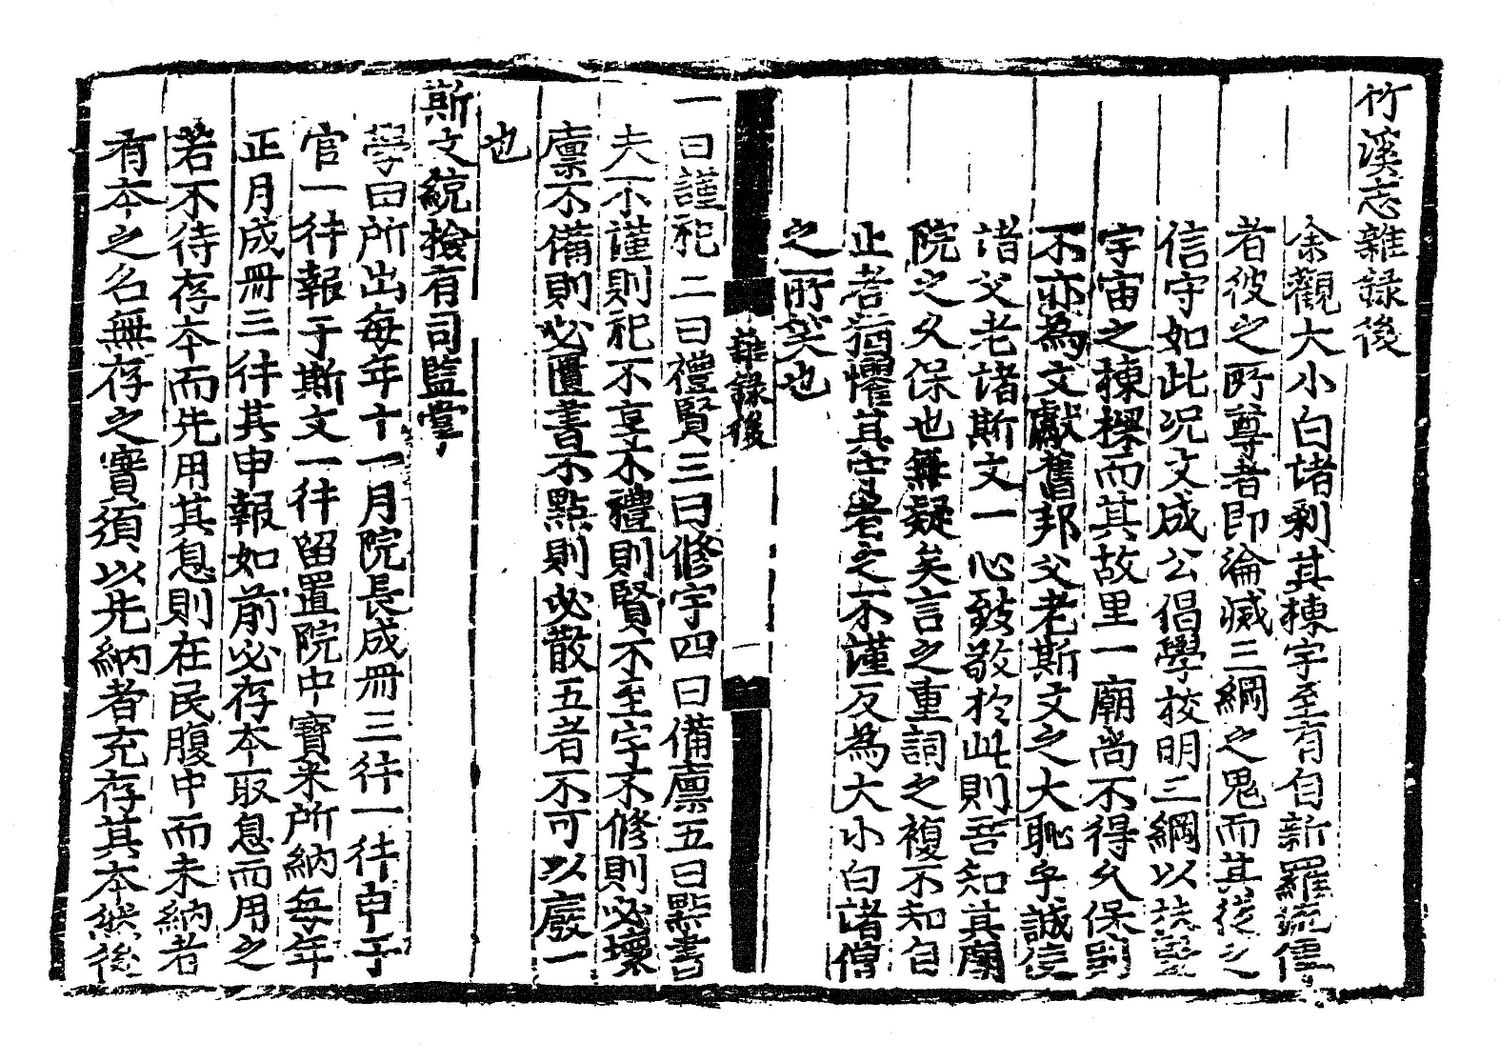 竹溪志雜錄後
余觀大小白諸刹其棟宇至有自新羅流傳
者彼之所尊者即淪滅三綱之鬼而其徒之
信守如此況文成公倡學校明三綱以扶竪
宇宙之棟樑而其故里一廟尚不得久保到
不亦為文獻舊邦父老斯文之大恥乎誠使
諸父老諸斯文一心致敬於此則吾知其廟
院之久保也無疑矣言之重詞之複不知自
止者猶懼其守者之不謹反為大小白諸僧
之所笑也
雜錄後
一
一曰謹祀二曰禮賢三曰修宇四曰備廩五曰點書
夫不謹則祀不享不禮則賢不至宇不修則必壞
廩不備則必匱書不點則必散五者不可以廢一
也
斯文統撿有司監掌
學曰所出每年十一月院長成冊三件一件申于
官一件報于斯文一件留置院中寶米所納每年
正月成冊三件其申報如前必存本取息而用之
若不待存本而先用其息則在民腹中而未納者
有本之名無存之實須以先納者充存其本然後